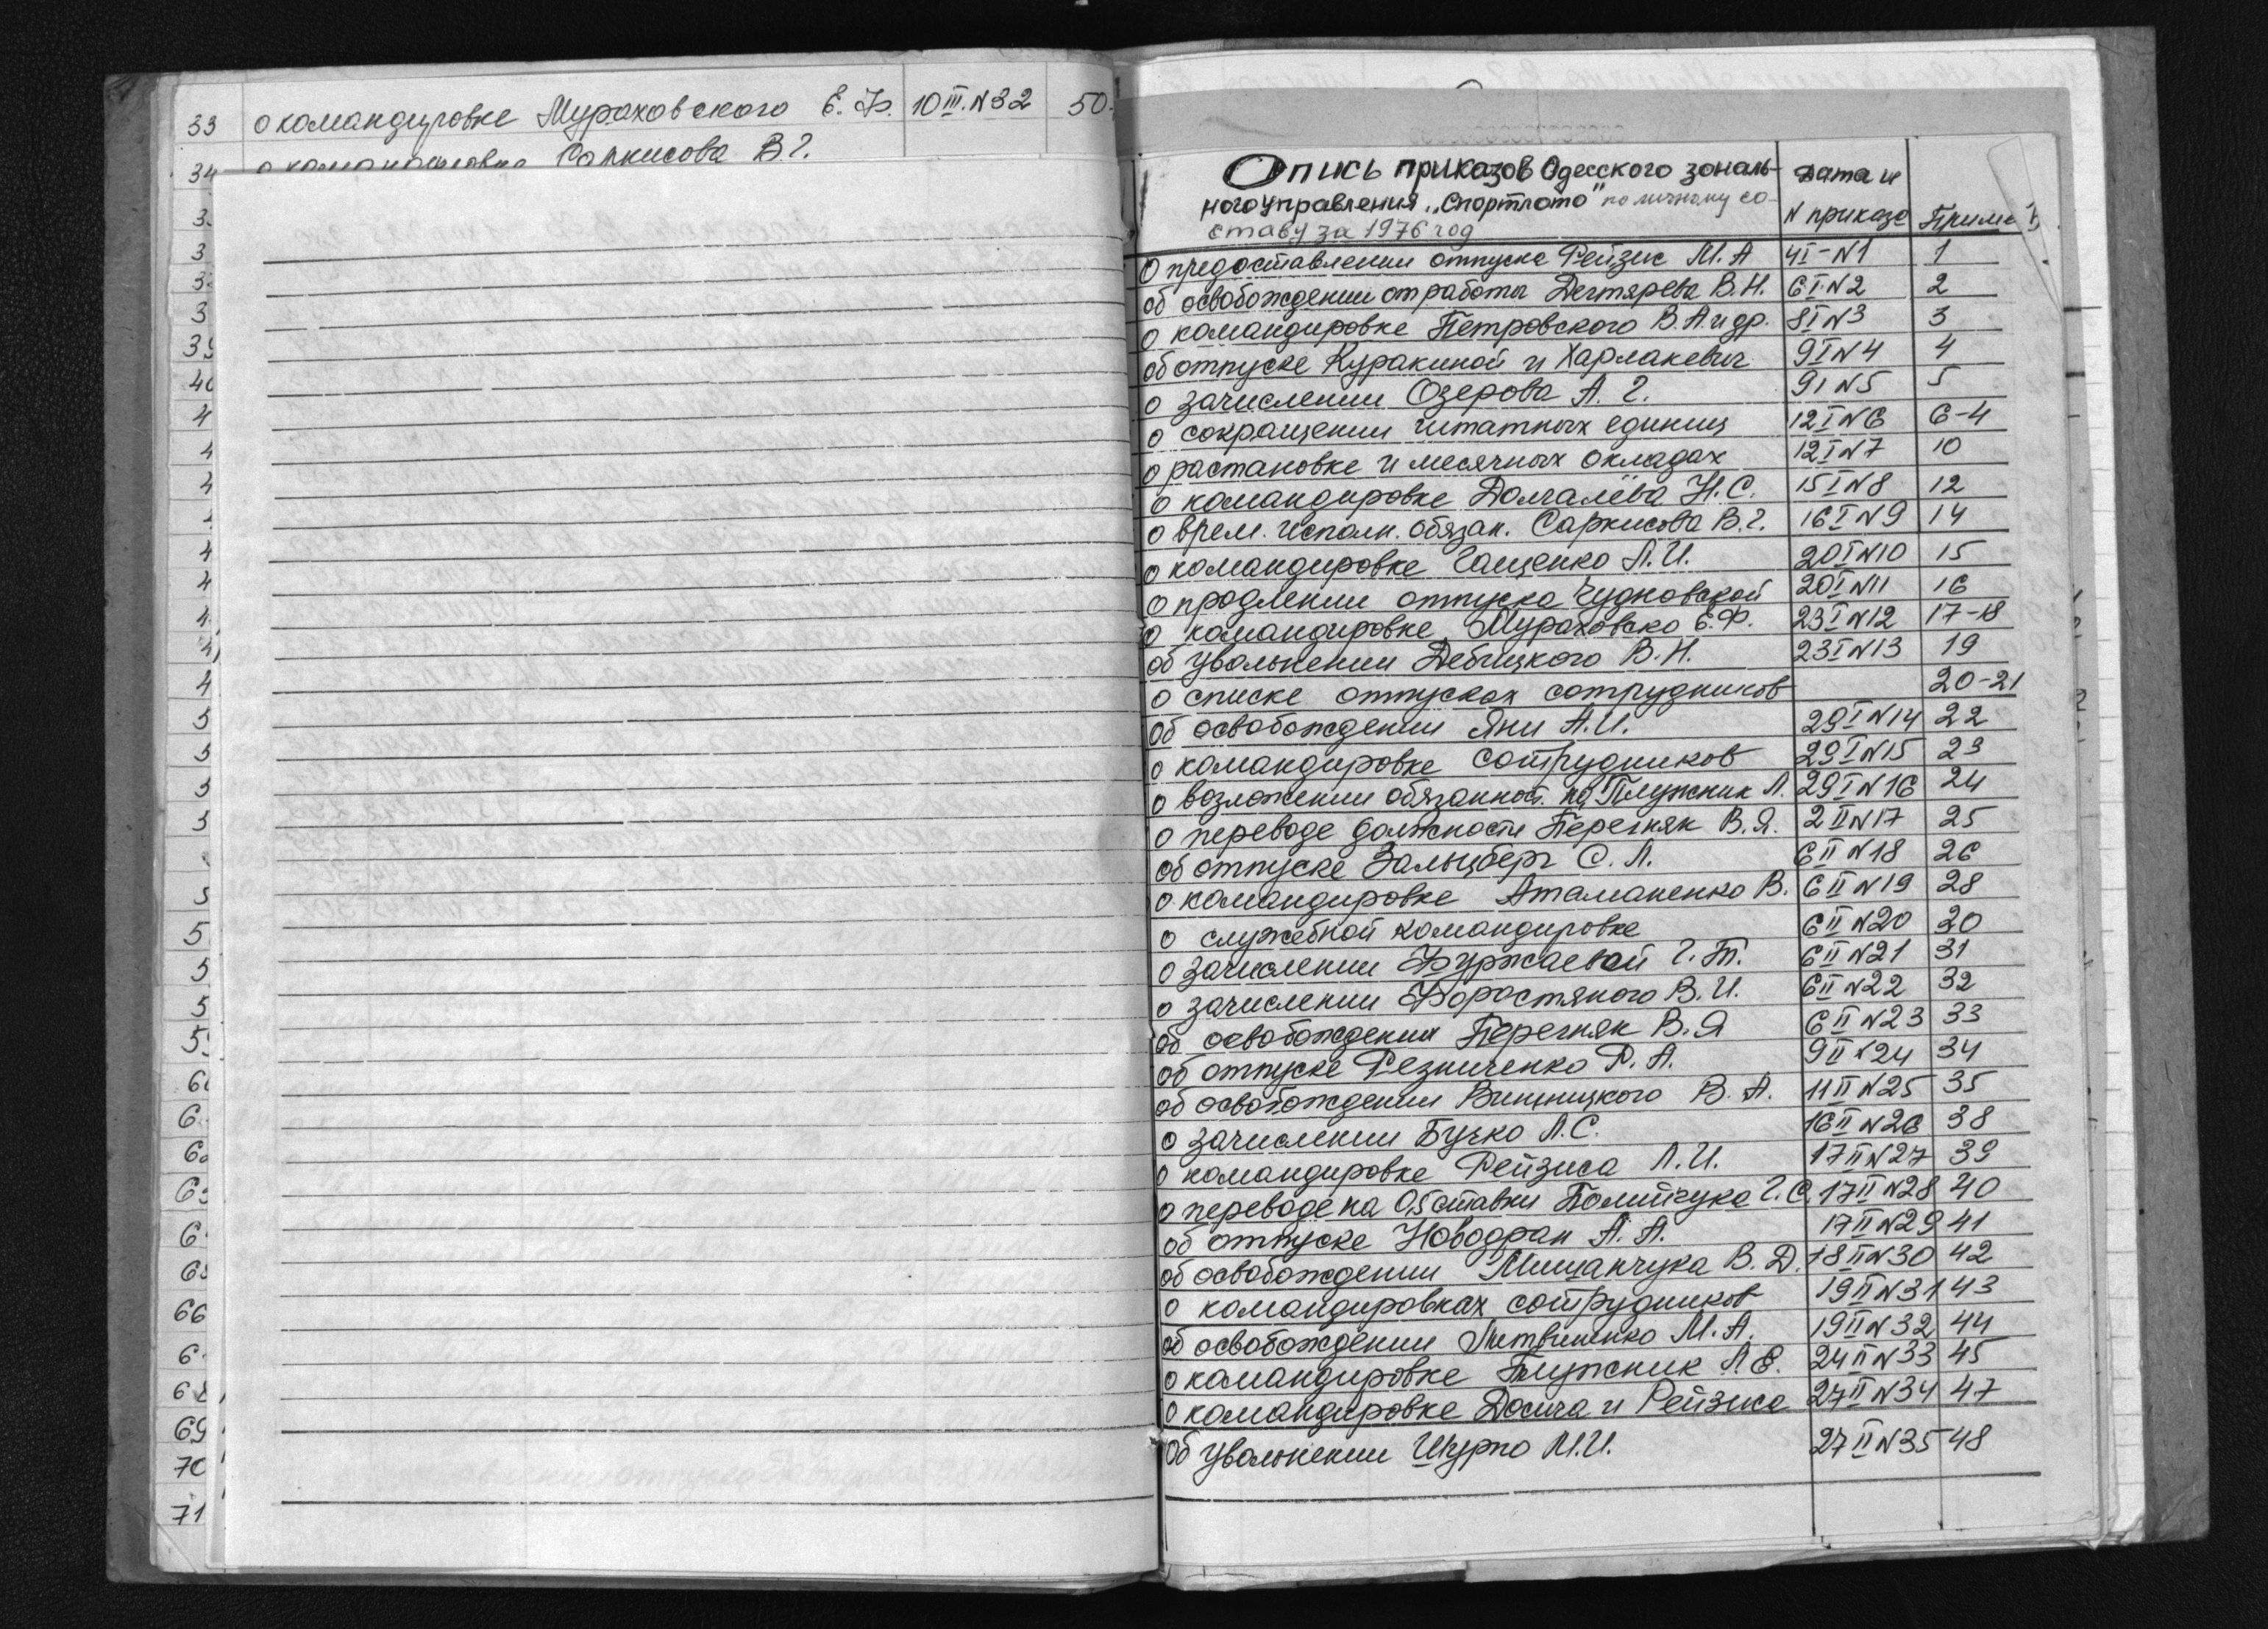 33 о командировке Мураховского Е. Ф. 10 III. N 32 50
34 о командировке Саркисова В. Г.
39
66
69
70
71
Опись приказов Одесского зональ-
ного управления „Спортлото" по личному со-
ставу за 1976 год
Дата и
N приказа
Приме
О предоставлении отпуска Рейзис М. А 4 I - N 1 1
об освобождении от работы Дегтярева В. Н. 6 I N 2 2
о командировке Петровского В. А. и др. 8 I N 3 3
об отпуске Куракиной и Харлакевич 9 I N 4 4
о зачислении Озерова А. Г. 9 I N 5 5
о сокращении штатных единиц 12 I N 6 6-4
о растановке и месячных окладах 12 I N 7 10
о командировке Долгалёва Н. С. 15 I N 8 12
о врем. исполн. обязан. Саркисова В. Г. 16 I N 9 14
о командировке Гащенко Л. И. 20 I N 10 15
о продлении отпуска Чудновской 20 I N 11 16
о командировке Мураховско Е. Ф. 23 I N 12 17-18
об увольнении Дебицкого В. Н. 23 I N 13 19
о списке отпусках сотрудников 20-21
об освобождении Яни А. И. 29 I N 14 22
о командировке сотрудников 29 I N 15 23
о возложении обязанност. на Плужник Л. 29 I N 16 24
о переводе должности Перегняк В. Я. 2 II N 17 25
об отпуске Зальцберг С. Л. 6 II N 18 26
о командировке Атаманенко В. 6 II N 19 28
о служебной командировке 6 II N 20 30
о зачислении Буржаевой Г. Т. 6 II N 21 31
о зачислении Форостяного В. И. 6 II N 22 32
об освобождении Перегняк В. Я 6 II N 23 33
об отпуске Резниченко Р. А. 9 II N 24 34
об освобождении Винницкого В. А. 11 II N 25 35
о зачислении Бучко Л. С. 16 II N 26 38
о командировке Рейзиса Л. И. 17 II N 27 39
о переводе на 0,5 ставки Полищука Г. С. 17 II N 28 40
об отпуске Новодран А. А. 17 II N 29 41
об освобождении Мишанчука В. Д. 18 II N 30 42
о командировках сотрудников 19 II N 31 43
об освобождении Литвиненко М. А. 19 II N 32 44
о командировке Плужник Л. Е. 24 II N 33 45
о командировке Досича и Рейзиса 27 II N 34 47
Об увольнении Шурпо М. И. 27 II N 35 48